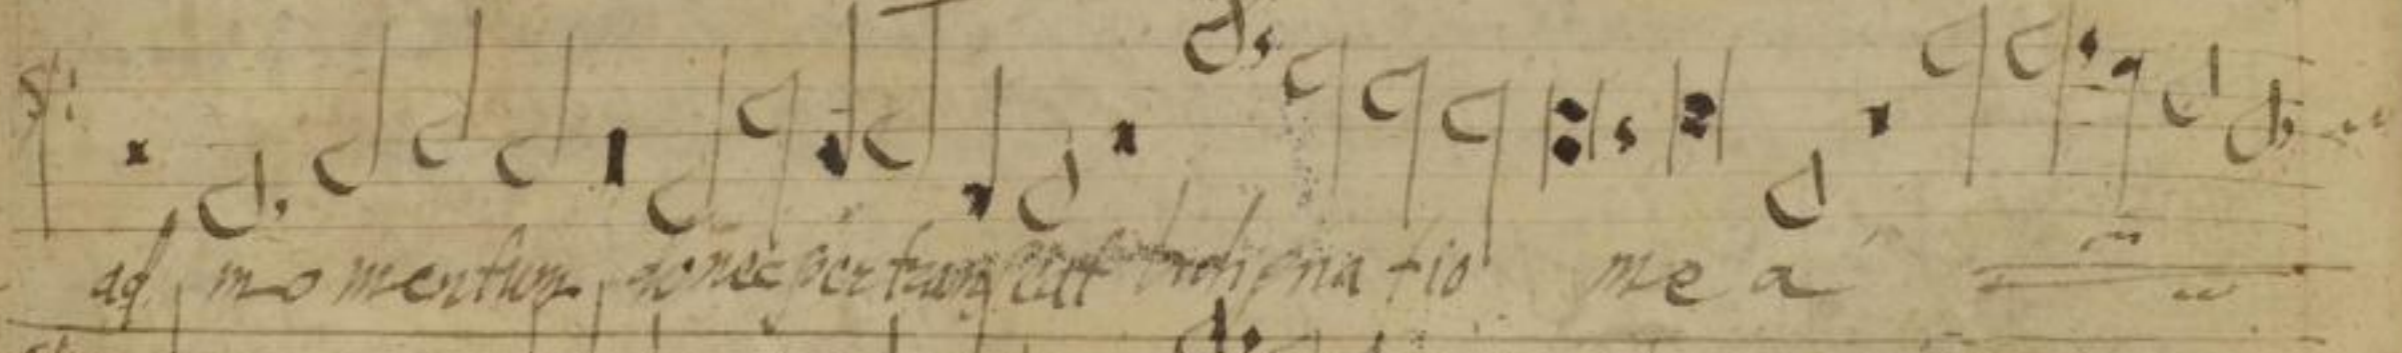 ad momentum donec pertranseat indignatio mea